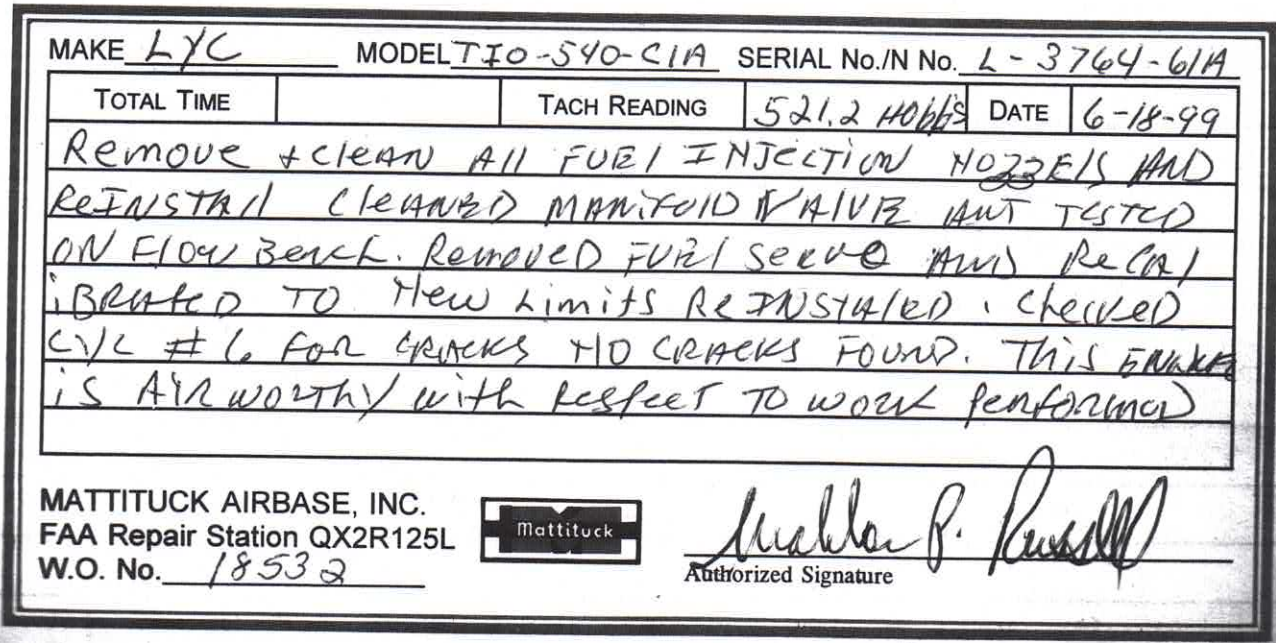 MAKE LYC MODEL TIO-540-C1A SERIAL No./N No. L-3764-61A
TOTAL TIME TACH READING 521.2 HOBBS DATE 6-18-99
Remove + clean All FUEL INJECTION NOZZELS AND
REINSTALL CLEANED MANIFOLD VALVE ANT TESTED
ON Flow Bench. Removed FUEL Servo AND ReCAL
iBRATED TO New Limits REINSTALED. Checked
CYL # 6 FOR CRACKS NO CRACKS FOUND. This ENGINE
is AIRWORTHY with Respect TO WORK Performed
MATTITUCK AIRBASE, INC.
FAA Repair Station QX2R125L
W.O. No. 18532
Mattituck
P. Russell
Authorized Signature